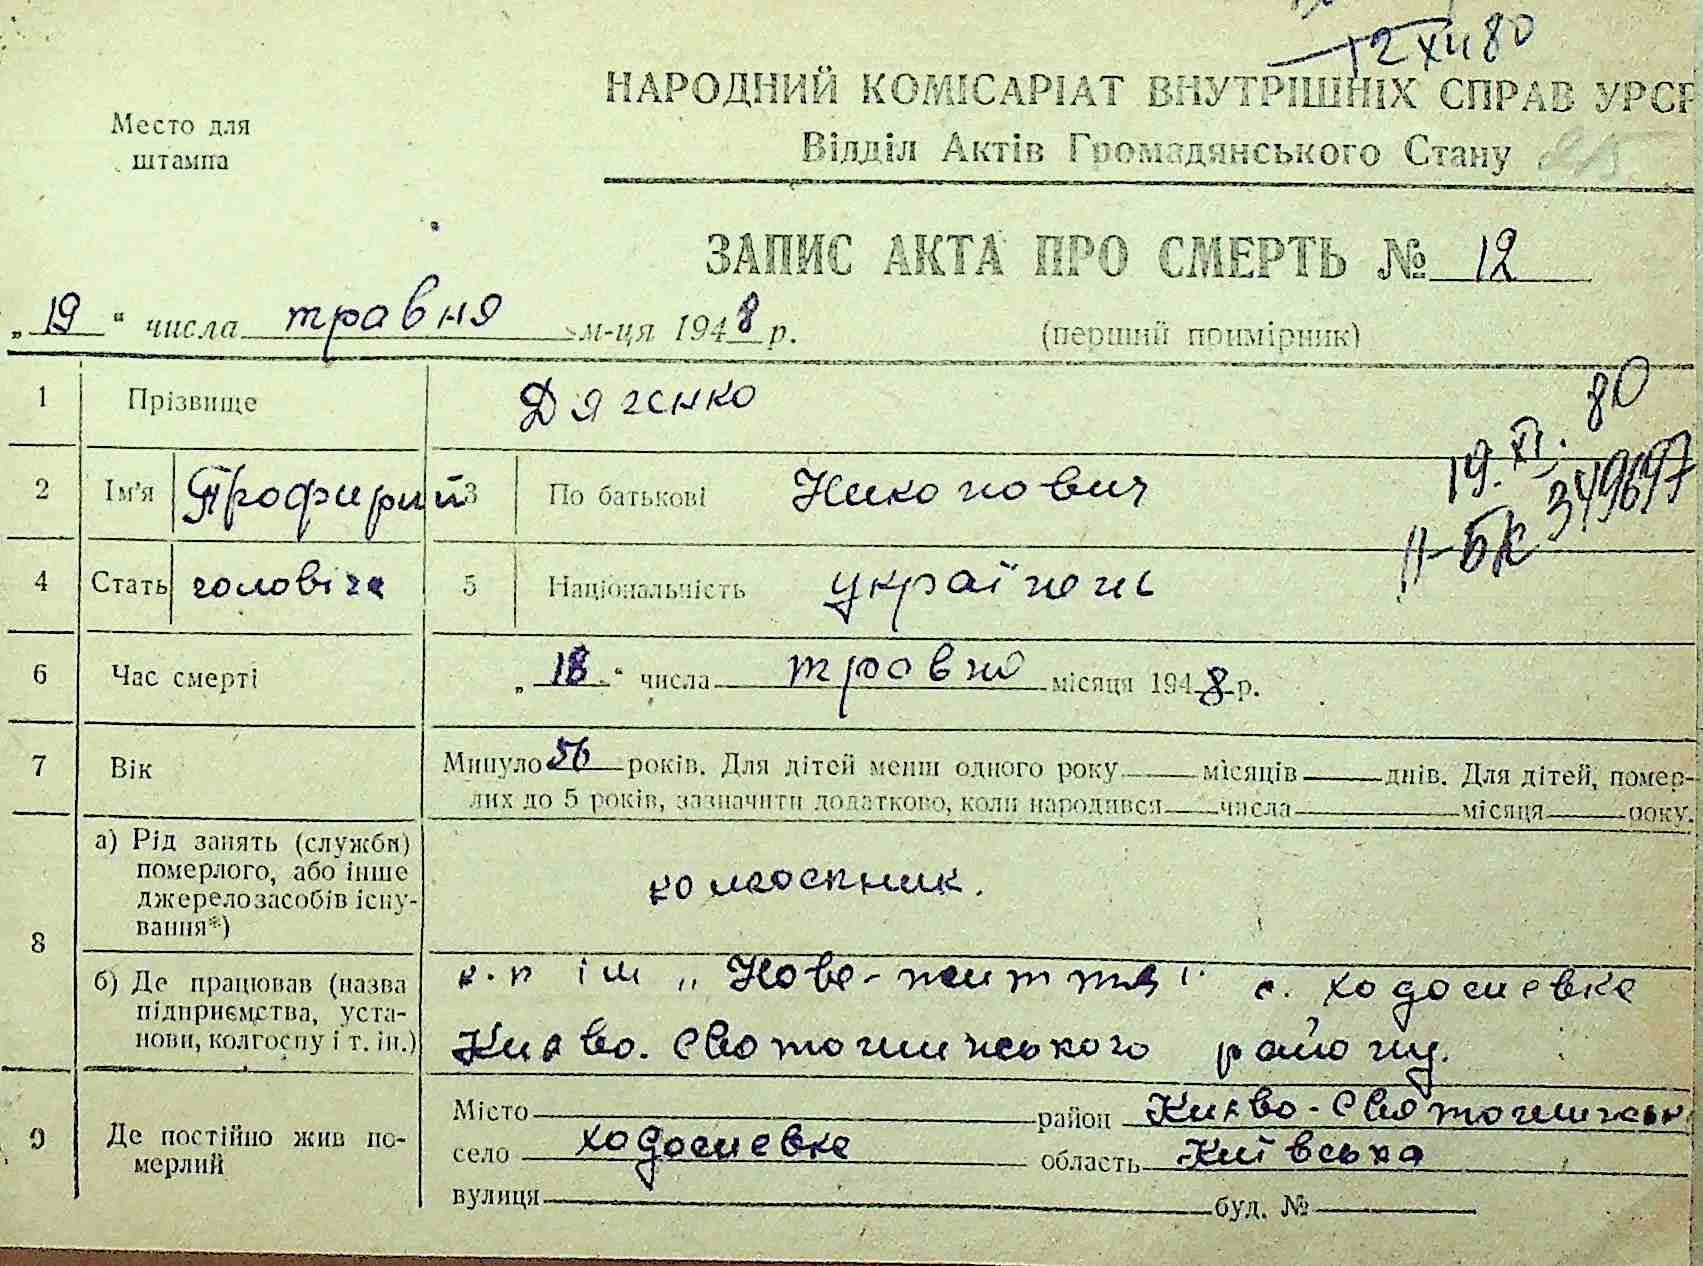 12 XII 80
НАРОДНИЙ КОМІСАРІАТ ВНУТРІШНІХ СПРАВ УРСР
Место для
штампа
Відділ Актів Громадянського Стану
ЗАПИС АКТА ПРО СМЕРТЬ № 12
„19“ числа травня м-ця 1948 р.
(перший примірник)
1 Прізвище Дяченко
19. XI. 80
2 Ім'я Профирий 3 По батькові Никонович
II-БК 349697
4 Стать чоловіча 5 Національність українець
6 Час смерті „18“ числа травня місяця 1948 р.
7 Вік Минуло 56 років. Для дітей менш одного року місяців днів. Для дітей, помер-
лих до 5 років, зазначити додатково, коли народився числа місяця року.
8 а) Рід занять (служби)
померлого, або інше
джерело засобів існу-
вання*)
колгоспник.
б) Де працював (назва
підприємства, уста-
нови, колгоспу і т. ін.)
к-п ім „Нове-життя“ с. Ходосиевка
Києво-Святошинського району.
9 Де постійно жив по-
мерлий
Місто район Києво-Святошинськ
село Ходосиевка область Київська
вулиця буд. №